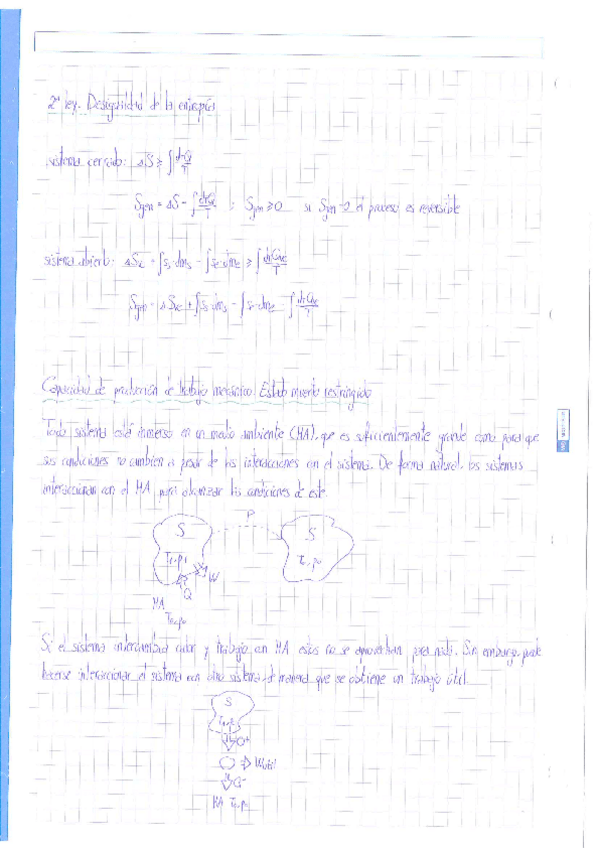 2ª ley. Desigualdad de la entropía
sistema cerrado: ΔS ≥ ∫ đQ/T
Sgen = ΔS - ∫ đQ/T ; Sgen ≥ 0 si Sgen = 0 el proceso es reversible
sistema abierto: ΔSvc + ∫ss·dms - ∫se·dme ≥ ∫ đQvc/T
Sgen = ΔSvc + ∫ss·dms - ∫se·dme - ∫ đQvc/T
Capacidad de producción de trabajo mecánico. Estado muerto restringido
Todo sistema está inmerso en un medio ambiente (MA), que es suficientemente grande como para que
sus condiciones no cambien a pesar de las interacciones con el sistema. De forma natural, los sistemas
interaccionan con el MA para alcanzar las condiciones de este.
P
S
S
T1, p1
To, po
W
Q
MA
To, po
Si el sistema intercambia calor y trabajo con MA estos no se aprovechan para nada. Sin embargo, puede
hacerse interaccionar el sistema con otro sistema de manera que se obtiene un trabajo útil.
S
Q+
Wútil
Q-
MA To, po